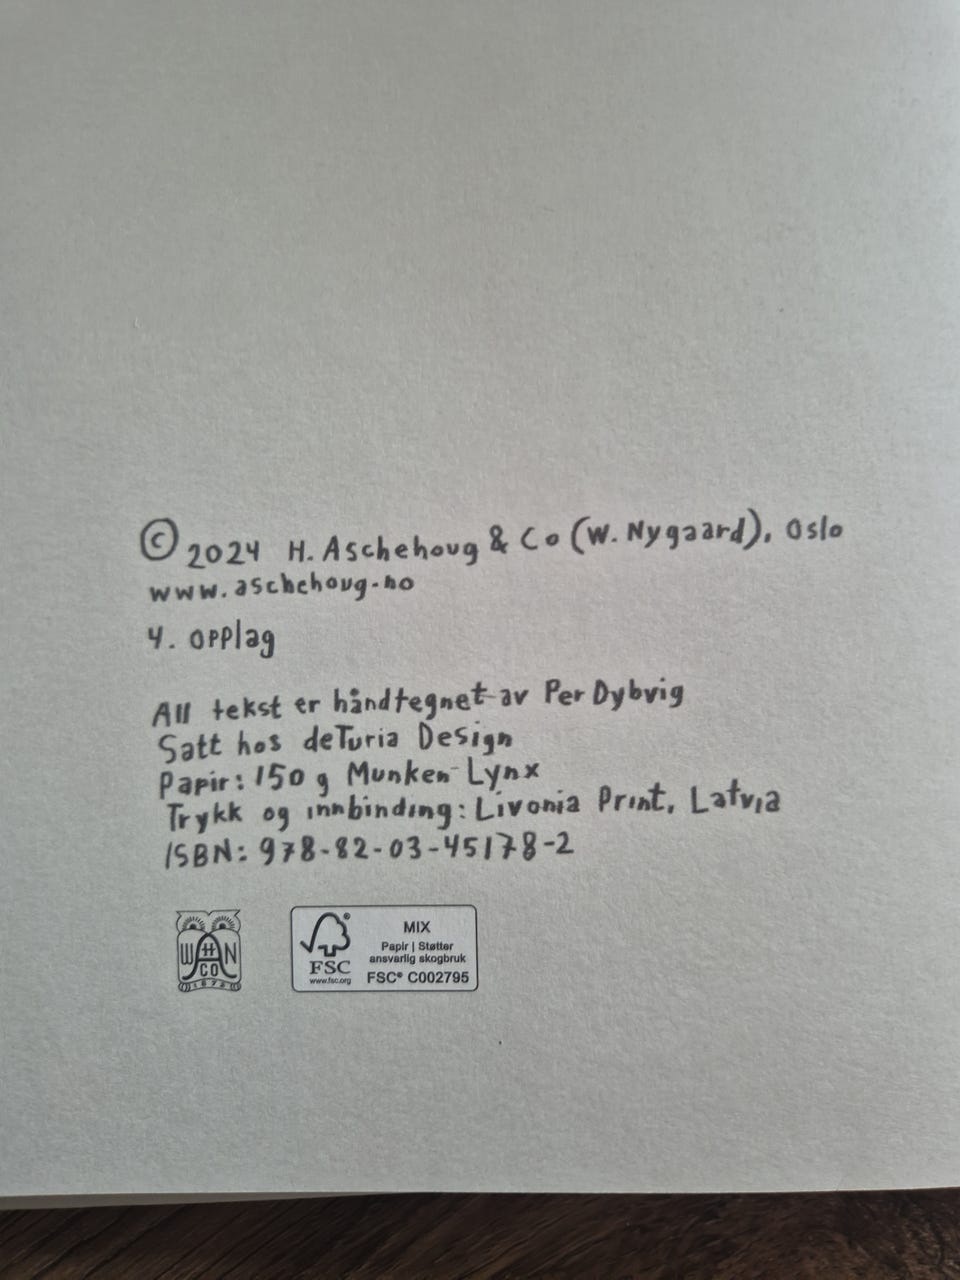 © 2024 H. Aschehoug & Co (W. Nygaard), Oslo
www.aschehoug.no
4. opplag
All tekst er håndtegnet av Per Dybvig
Satt hos deTuria Design
Papir: 150 g Munken Lynx
Trykk og innbinding: Livonia Print, Latvia
ISBN: 978-82-03-45178-2
W H N
A
CO
1872
FSC®
www.fsc.org
MIX
Papir | Støtter
ansvarlig skogbruk
FSC® C002795